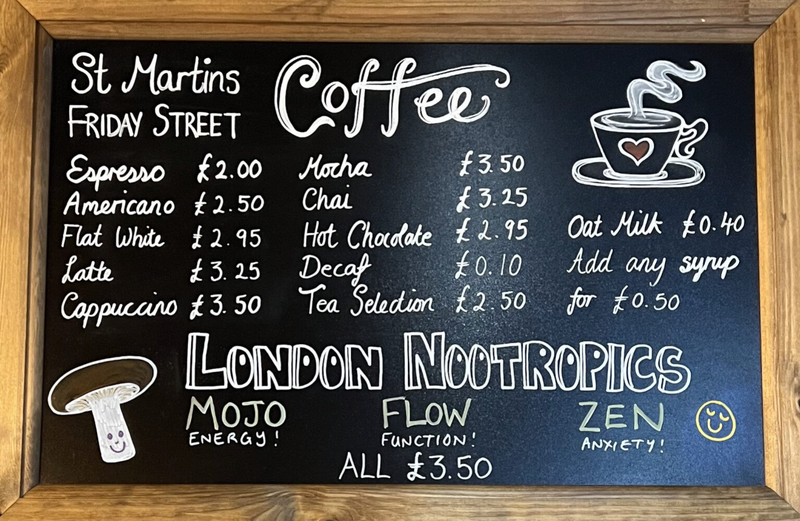 St Martins
FRIDAY STREET
Coffee
Espresso £2.00
Americano £2.50
Flat White £2.95
Latte £3.25
Cappuccino £3.50
Mocha £3.50
Chai £3.25
Hot Chocolate £2.95
Decaf £0.10
Tea Selection £2.50
Oat Milk £0.40
Add any syrup
for £0.50
LONDON NOOTROPICS
MOJO FLOW ZEN
ENERGY! FUNCTION! ANXIETY!
ALL £3.50